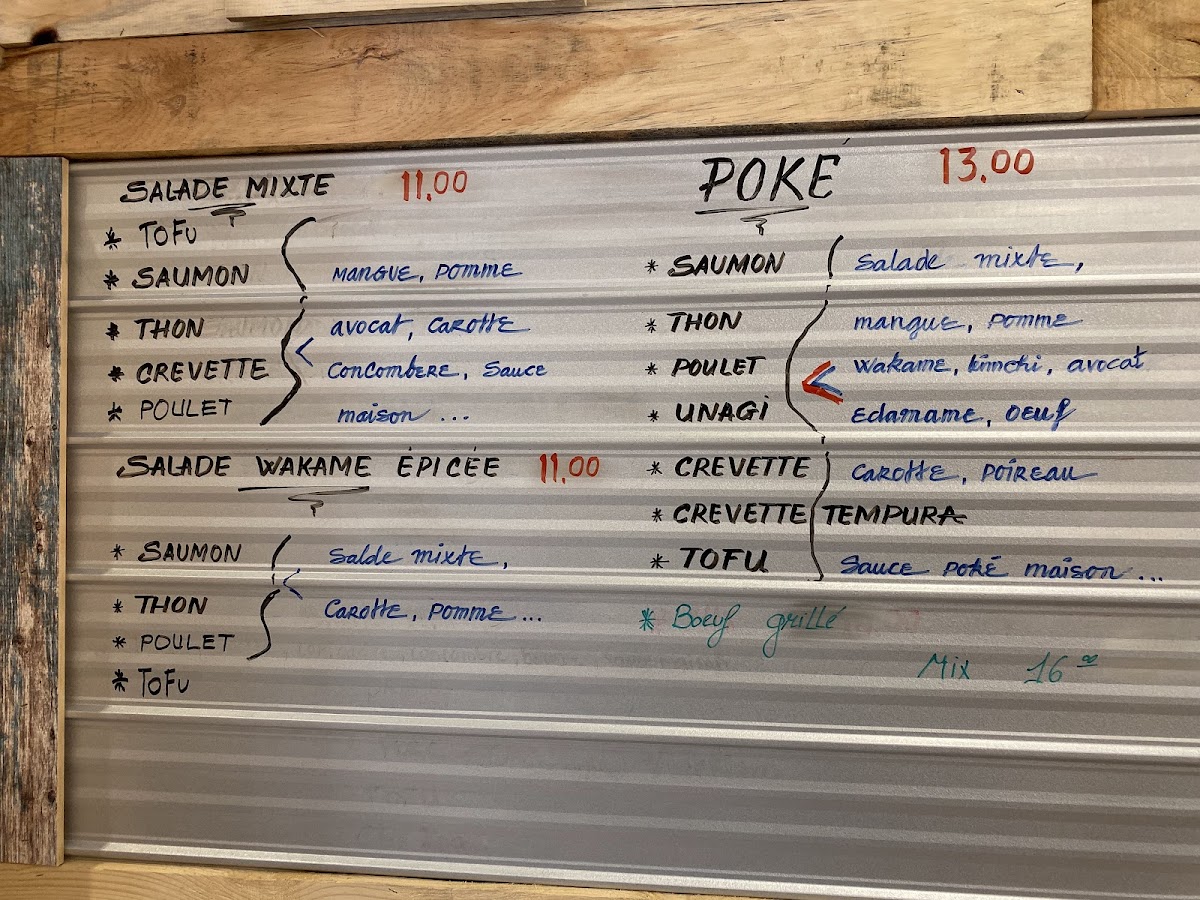 SALADE MIXTE 11.00
* TOFU
* SAUMON mangue, pomme
* THON avocat, carotte
* CREVETTE Concombere, Sauce
* POULET maison ...
SALADE WAKAME ÉPICÉE 11.00
* SAUMON Salde mixte,
* THON Carotte, pomme...
* POULET
* TOFU
POKÉ 13.00
* SAUMON Salade mixte,
* THON mangue, pomme
* POULET Wakame, kimchi, avocat
* UNAGI Edamame, oeuf
* CREVETTE Carotte, poireau
* CREVETTE TEMPURA
* TOFU Sauce poké maison ...
* Boeuf grillé
Mix 16 00